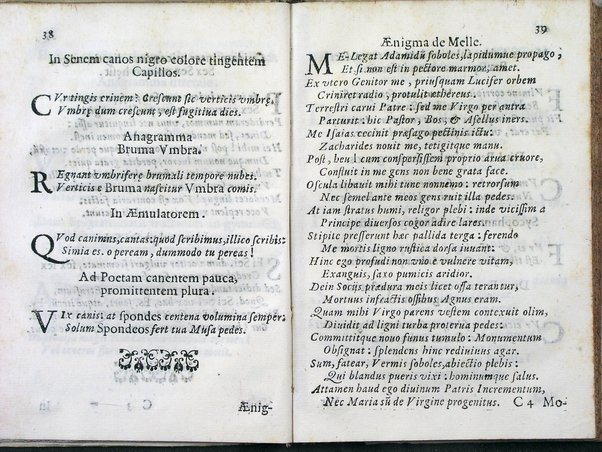 38
In Senem canos nigro colore tingentem
Capillos.
CVr tingis crinem? Crescunt sic verticis vmbræ.
Vmbræ dum crescunt, est fugitiua dies.
Anagramma
Bruma Vmbra.
REgnant vmbriferæ brumali tempore nubes.
Verticis e Bruma nascitur Vmbra comis.
In Æmulatorem.
QVod canimus, cantas: quod scribimus, illico scribis:
Simia es. o peream, dummodo tu pereas!
Ad Poetam canentem pauca,
promittentem plura.
VIx canis: at spondes centena volumina semper.
Solum Spondeos fert tua Musa pedes.
Ænig-
39
Ænigma de Melle.
ME Legat Adamidũ soboles, lapidumue propago;
Et si non est in pectore marmor, amet.
Ex vtero Genitor me, priusquam Lucifer orbem
Criniret radio, protulit æthereus.
Terrestri carui Patre: sed me Virgo per antra
Parturit: hic Pastor, Bos, & Asellus iners.
Me Isaias cecinit præsago pectinis ictu:
Zacharides nouit me, tetigitque manu.
Post, heu! cum conspersissem proprio arua cruore,
Consluit in me gens non bene grata face.
Oscula libauit mihi tunc nonnemo: retrorsum
Nec semel ante meos gens ruit illa pedes.
At iam stratus humi, religor plebi: inde vicissim a
Principe diuersos cogor adire lares.
Stipite presserunt hæc pallida terga: ferendo
Me mortis ligno rustica dorsa iuuant.
Hinc ego profudi non vno e vulnere vitam,
Exanguis, saxo pumicis aridior.
Dein Socijs prædura meis licet ossa terantur,
Mortuus infractis ossibus Agnus eram.
Quam mihi Virgo parens vestem contexuit olim,
Diuidit ad ligni turba proterua pedes.
Committitque nouo funus tumulo: Monumentum
Obsignat: splendens hinc rediuiuus agar.
Sum, fatear, Vermis soboles, abiectio plebis:
Qui blandus pueris vixi: hominumque salus.
Attamen haud ego diuinum Patris Incrementum,
Nec Maria sũ de Virgine progenitus.
C 4 Mo-